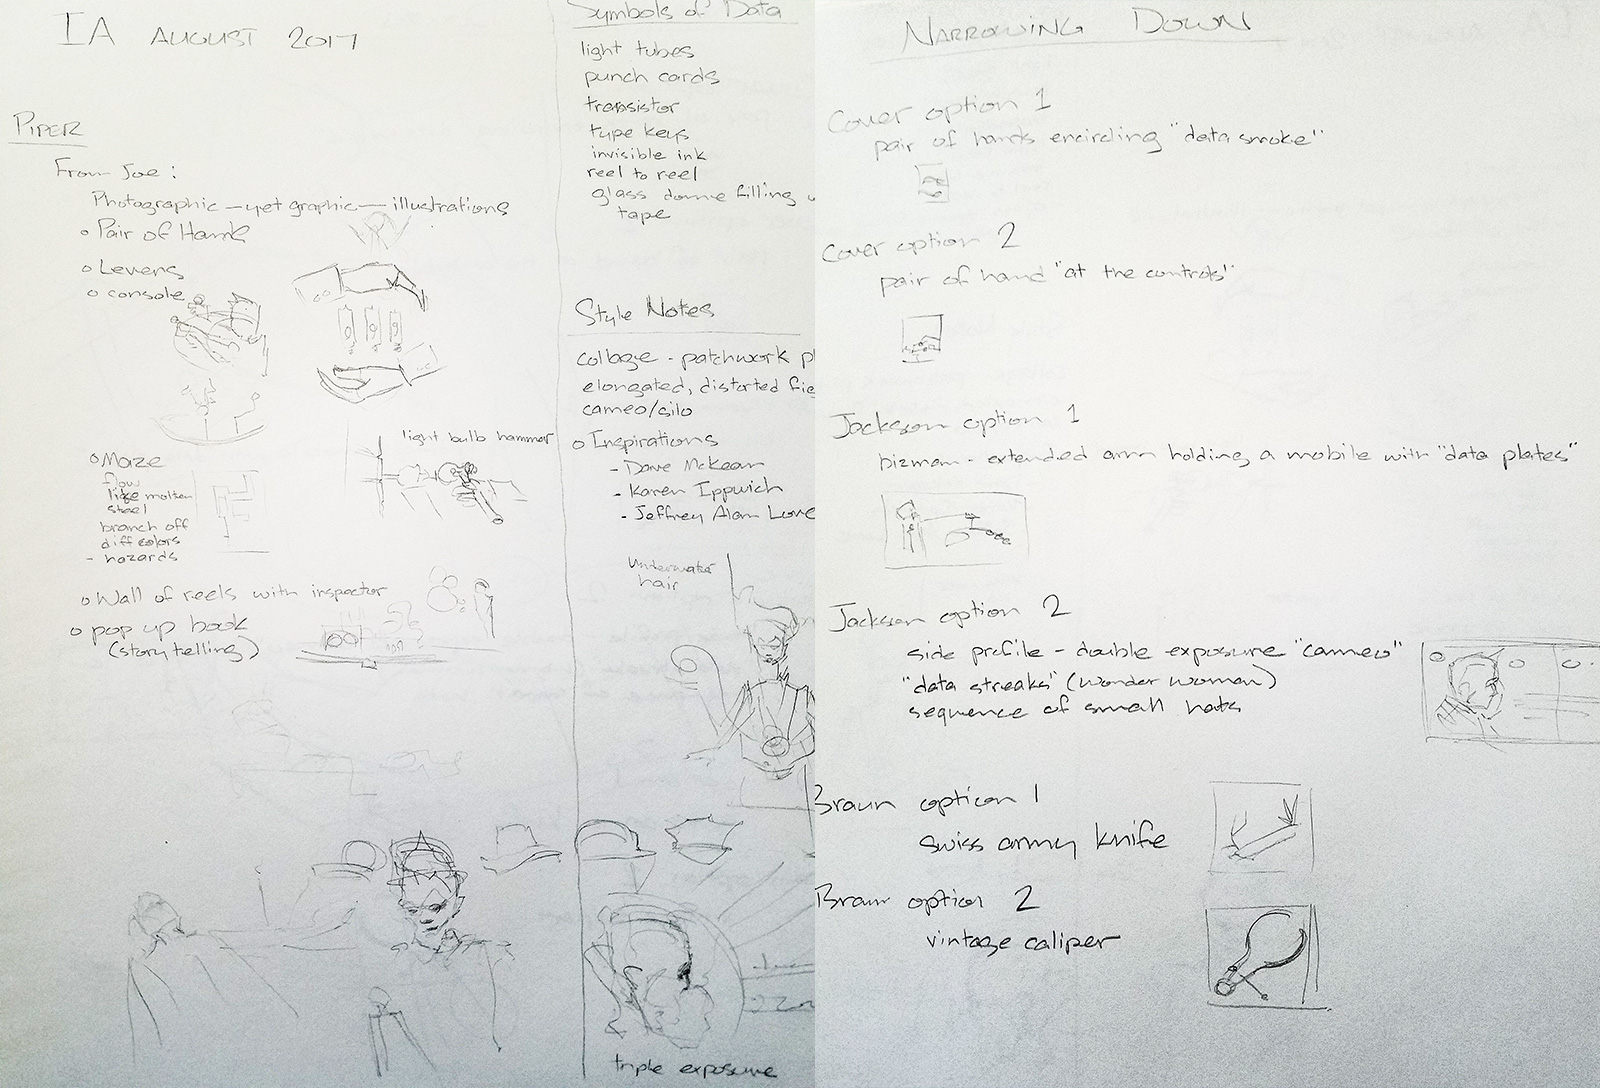 IA AUGUST 2017
PIPER
From Joe:
Photographic — yet graphic — illustrations
Pair of Hands
Levers
console
light bulb hammer
Maze
flow
like molten
steel
branch off
diff colors
- hazards
Wall of reels with inspector
pop up book
(story telling)
Symbols of Data
light tubes
punch cards
transistor
type keys
invisible ink
reel to reel
glass dome filling
tape
Style Notes
collage - patchwork
elongated, distorted
cameo/silo
Inspirations
- Dave McKean
- Karen Ippwich
- Jeffrey Alan Love
Underwater
hair
triple exposure
NARROWING DOWN
Cover option 1
pair of hands encircling "data smoke"
Cover option 2
pair of hand "at the controls"
Jackson option 1
bizman - extended arm holding a mobile with "data plates"
Jackson option 2
side profile - double exposure "cameo"
"data streaks" (wonder woman)
sequence of small hats
Braun option 1
swiss army knife
Braun option 2
vintage caliper